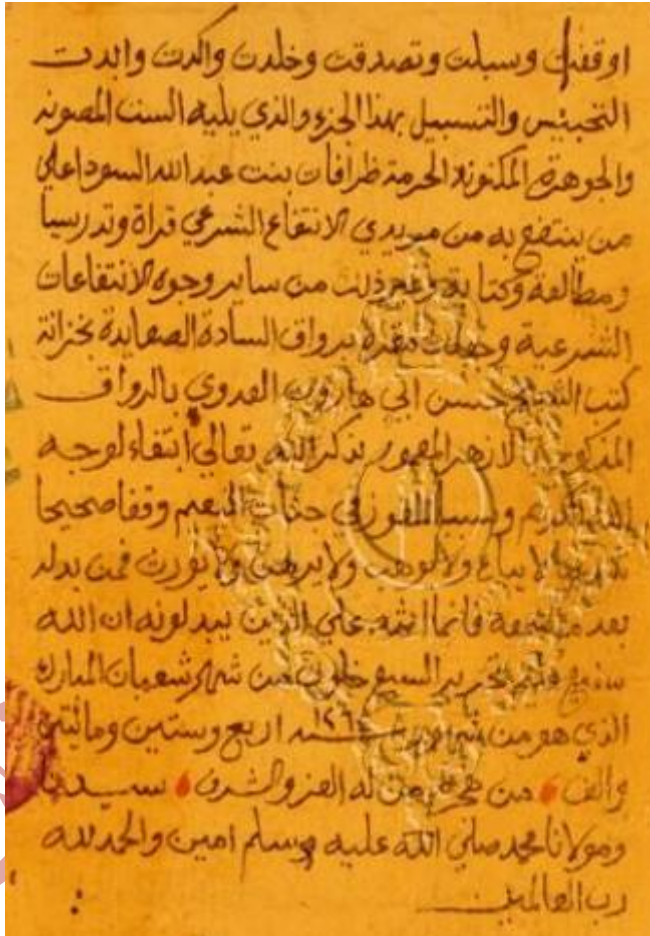 اوقفت وسبلت وتصدقت وخلدت واكدت وابدت
التحبيس والتسبيل بهذا الجزء والذي يليه الست المصونه
والجوهرة المكنونه الحرمة ظرافات بنت عبد الله السودا علي
من ينتفع به من مريدي الانتفاع الشرعي قراة وتدريسا
ومطالعة وكتابة وغير ذلك من ساير وجوه الانتفاعات
الشرعية وجعلت مقره برواق السادة الصعايدة بخزانة
كتب الشيخ حسن ابي هارون العدوي بالرواق
المذكور بالازهر المعمور بذكر الله تعالي ابتغاء لوجه
الله الكريم وسببا للفوز في جنات النعيم وقفا صحيحا
شرعيا لا يباع ولا يوهب ولا يرهن ولا يورث فمن بدله
بعد ما سمعه فانما اثمه علي الذين يبدلونه ان الله
سميع عليم تحرير السبع خلون من شهر شعبان المبارك
الذي هو من شهور ١٢٦٤ سنه اربع وستين ومائتين
والف من هجرة من له العز والشرف سيدنا
ومولانا محمد صلي الله عليه وسلم امين والحمد لله
رب العالمين